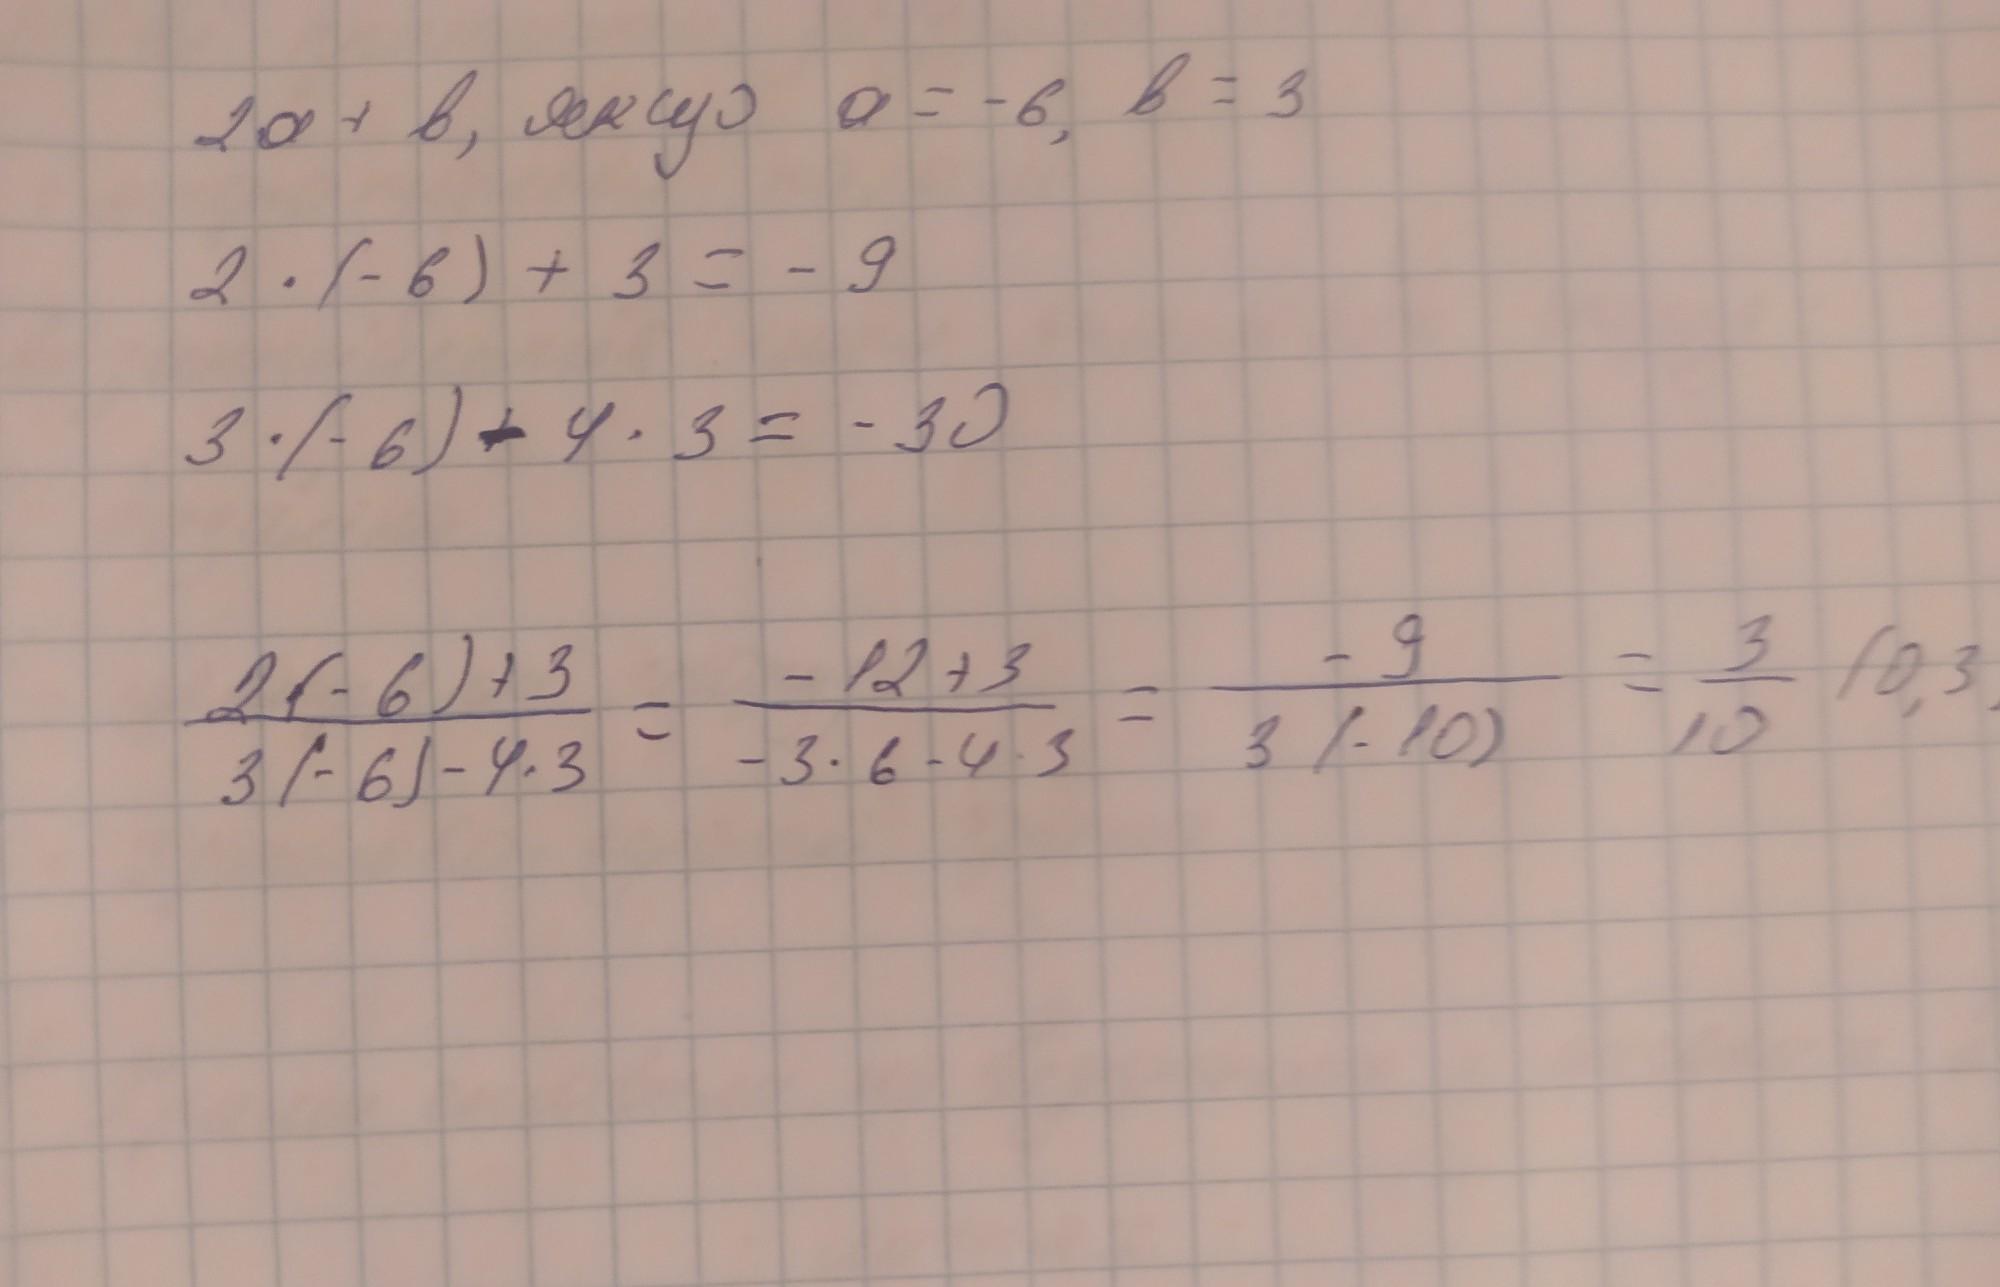 2a + b, якщо a = -6, b = 3
2 · (-6) + 3 = - 9
3 · (-6) - 4 · 3 = - 30
2(-6)+3 / 3(-6)-4·3 = -12+3 / -3·6-4·3 = -9 / 3(-10) = 3/10 (0,3)